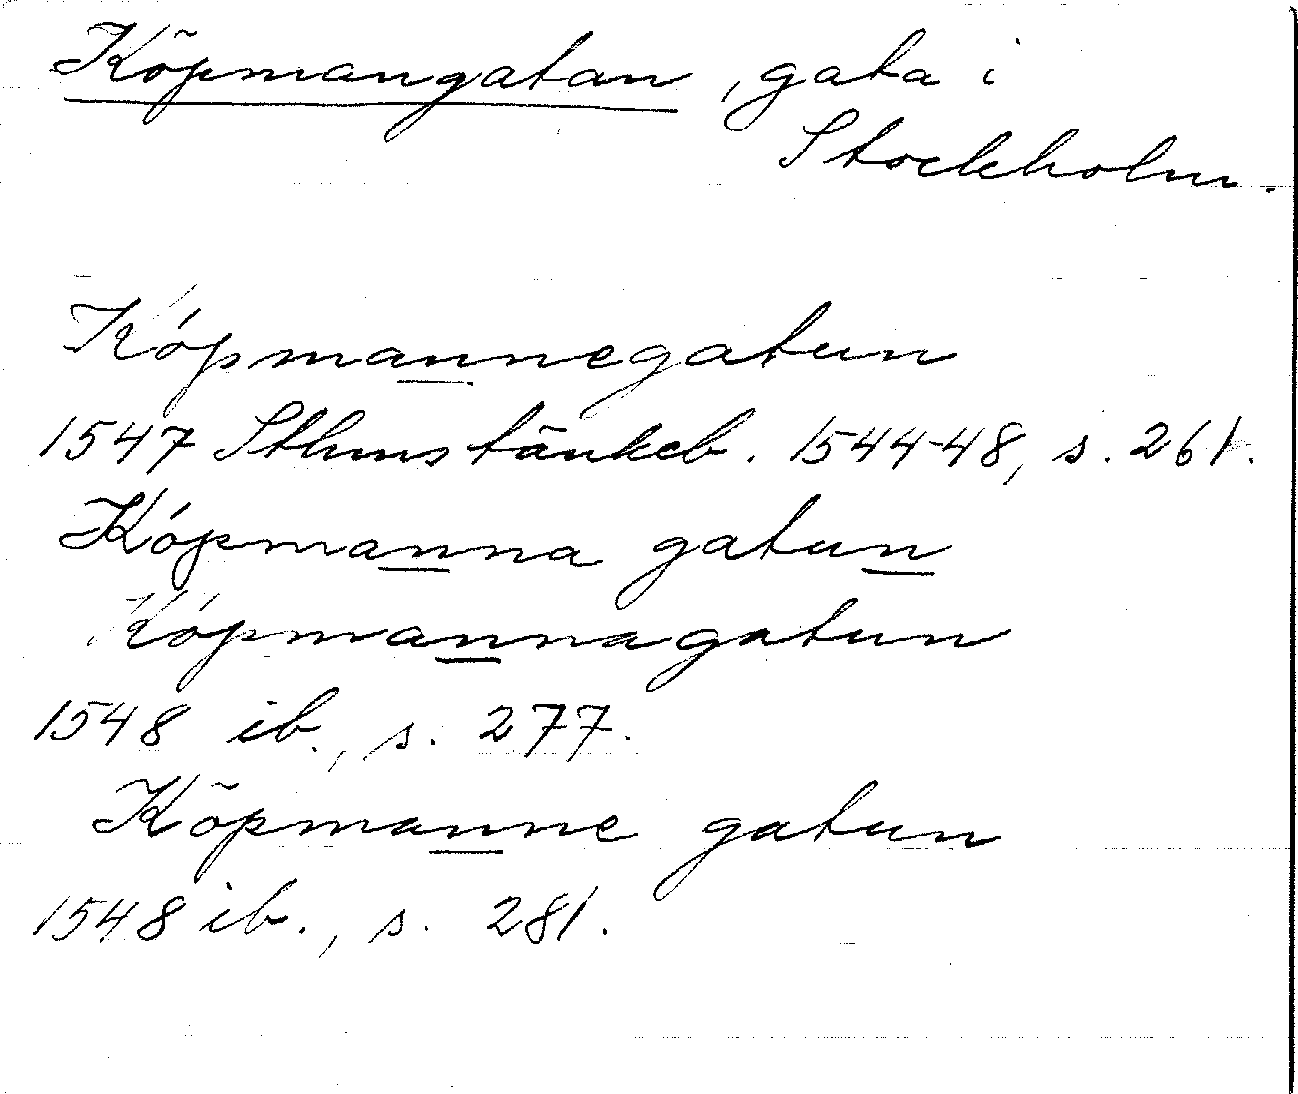 Köpmangatan, gata i
Stockholm.
Kópmannegatun
1547 Sthms tänkeb. 1544-48, s. 261.
Kópmanna gatun
Kópmannagatun
1548 ib., s. 277.
Köpmanne gatun
1548 ib., s. 281.